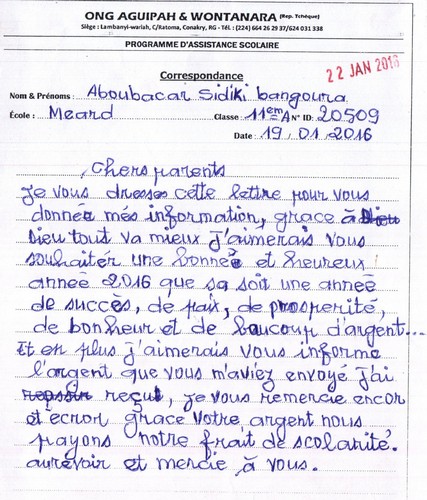 ONG AGUIPAH & WONTANARA (Rep. Tchèque)
Siège : Lambanyi-wariah, C/Ratoma, Conakry, RG - Tél : (224) 664 26 29 37/624 031 338
PROGRAMME D'ASSISTANCE SCOLAIRE
22 JAN 2016
Correspondance
Nom & Prénoms : Aboubacar Sidiki bangoura
École : Meard Classe : 11em A N° ID: 20509
Date : 19.01.2016
Chers parents
Je vous dresses cette lettre pour vous
donnée mes information, grace à
Dieu tout va mieux j'aimerais vous
souhaiter une bonneé et heureux
année 2016 que sa soit une année
de succès, de paix, de prosperité,
de bonheur et de baucoup d'argent...
Et en plus j'aimerais vous informe
l'argent que vous m'aviez envoyé j'ai
reçut, je vous remercie encor
et ecror grace votre argent nous
payons notre frait de scolarité.
aurevoir et mercie à vous.